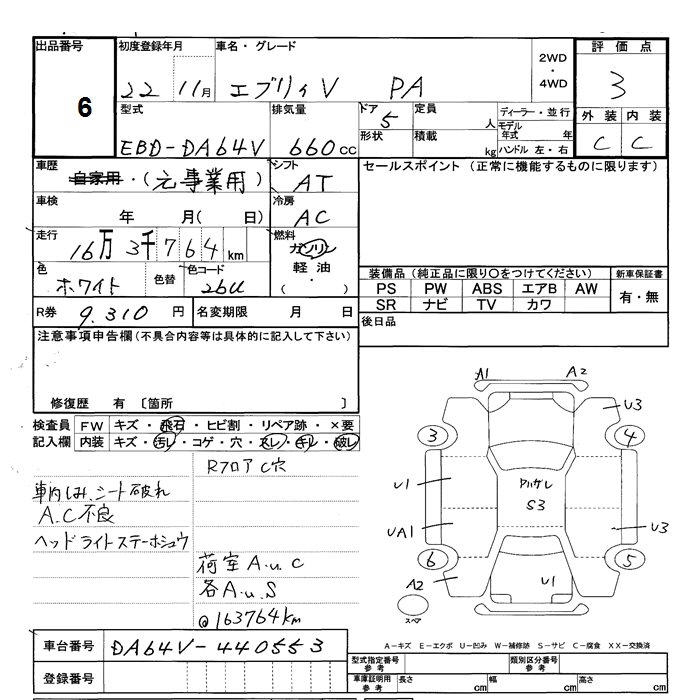 出品番号 初度登録年月 車名・グレード 2WD・4WD 評価点
6 22 11月 エブリィV PA 3
型式 排気量 ドア 定員 ディーラー・並行 外装 内装
EBD-DA64V 660cc 5 人 モデル年式 年 C C
形状 積載 kg ハンドル 左・右
車歴 自家用・(元事業用) シフト AT セールスポイント (正常に機能するものに限ります)
車検 年 月( 日) 冷房 AC
走行 16万3千764km 燃料 ガソリン
軽油
( ・ )
色 ホワイト 色替 色コード 26U
装備品 (純正品に限り○をつけてください) 新車保証書
PS PW ABS エアB AW 有・無
SR ナビ TV カワ
R券 9.310 円 名変期限 月 日 後日品
注意事項申告欄(不具合内容等は具体的に記入して下さい)
修復歴 有 〔箇所 〕
検査員 FW キズ・飛石・ヒビ割・リペア跡・×要
記入欄 内装 キズ・汚レ・コゲ・穴・スレ・キレ・破レ
RフロアC穴
車内しみ、シート破れ
A.C不良
ヘッドライトステーホシュウ
荷室A.u.C
各A.u.S
@163764km
A1 A2
U3
3 4
U1 S3
UA1 U3
6 5
A2 U1
スペア
車台番号 DA64V-440553
登録番号
A-キズ E-エクボ U-凹み W-補修跡 S-サビ C-腐食 XX-交換済
型式指定番号 参考 類別区分番号 参考
車庫証明用 参考 長さ cm 幅 cm 高さ cm